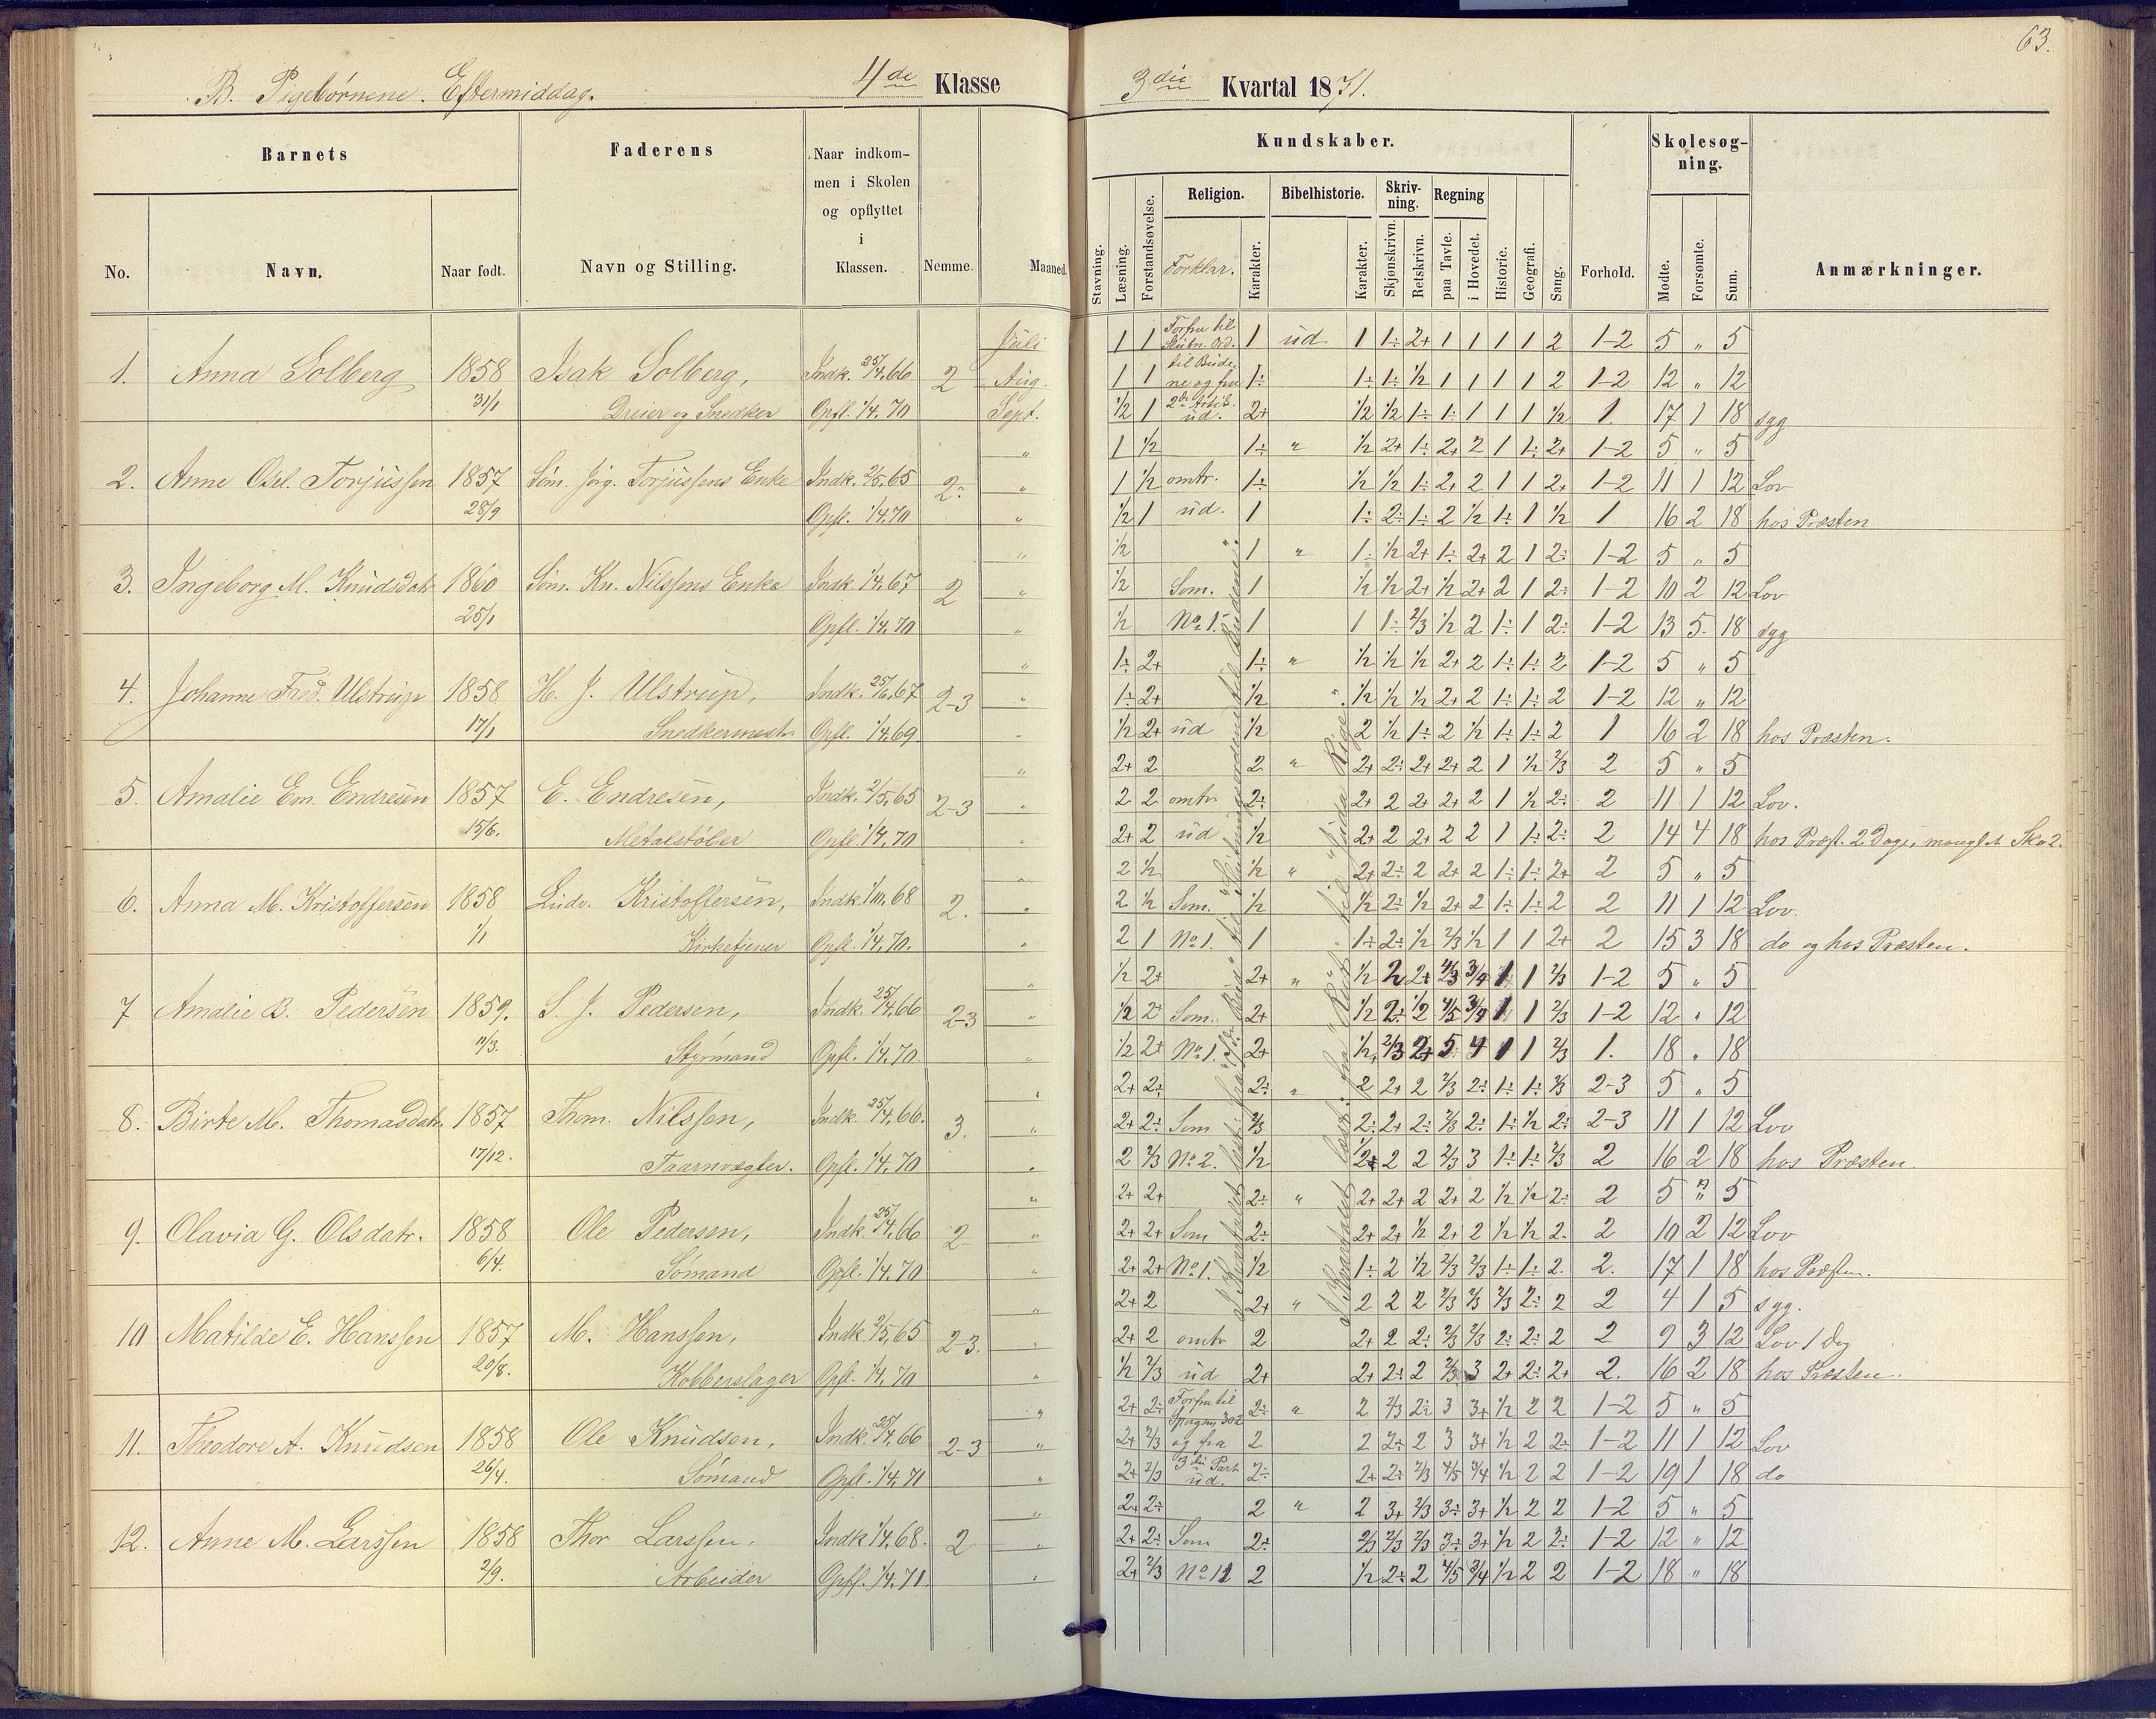 63.
B. Pigebørnene. Eftermiddag. 4de Klasse 3die Kvartal 1871.
Barnets Faderens Naar indkom-
men i Skolen
og opflyttet
i
Klassen.
No. Navn. Naar født. Navn og Stilling. Nemme. Maaned.
Kundskaber. Skolesøg-
ning.
Religion. Bibelhistorie. Skriv-
ning. Regning
Stavning. Læsning. Forstandsøvelse. Forklar. Karakter. Karakter. Skjønskrivn. Retskrivn. paa Tavle. i Hovedet. Historie. Geografi. Sang. Forhold. Mødte. Forsømte. Sum. Anmærkninger.
1. Anna Solberg 1858 31/1 Isak Solberg, Dreier og Snedker Indk. 25/4.66 Opfl. 1/4.70 2
Juli 1 1 Forfra til Slutn. Ord. 1 ud 1 1÷ 2+ 1 1 1 1 2 1-2 5 " 5
Aug. 1 1 til Bude- ne og fra 1÷ 1÷ 1÷ 1/2 1 1 1 1 2 1-2 12 " 12
Sept. 1/2 1 ud. 2+ 1/2 1/2 1÷ 1÷ 1 1 1 1/2 1. 17 1 18 sgg
2. Anne Osel. Torjussen 1857 28/9 Søm. Jørg. Torjussens Enke Indk. 2/5.65 Opfl. 1/4.70 2÷
" 1 1/2 1÷ " 1/2 2+ 1÷ 2+ 2 1 1÷ 2+ 1-2 5 " 5
" 1 1/2 omtr. 1÷ 1/2 1/2 1÷ 2+ 2 1 1 2+ 1-2 11 1 12 Lov
" 1/2 1 ud. 1 1÷ 2÷ 1÷ 2 1/2 1÷ 1 1/2 1 16 2 18 hos Præsten
3. Ingeborg M. Knudsdatr 1860 25/1 Søm. Kn. Nilssens Enke Indk 1/4.67 Opfl. 1/4.70 2
" 1/2 1 " 1÷ 1/2 2+ 1÷ 2+ 2 1 2÷ 1-2 5 " 5
" 1/2 Som. 1 1/2 1/2 2+ 1/2 2+ 2 1 2÷ 1-2 10 2 12 Lov
" 1/2 No. 1. 1 1 1÷ 2/3 1/2 2 1÷ 1 2÷ 1-2 13 5. 18 sgg
4. Johanne Fred. Ulstrup 1858 17/1 H. J. Ulstrup, Snedkermestr Indk. 25/6.67 Opfl. 1/4.69. 2-3
" 1÷ 2+ 1÷ " 1/2 1/2 1/2 2+ 2 1÷ 1÷ 2 1-2 5 " 5
" 1÷ 2+ 1/2 1/2 1/2 1/2 2+ 2 1÷ 1÷ 2 1-2 12 " 12
" 1/2 2+ ud 1/2 2 1/2 1÷ 2 1/2 1÷ 1÷ 2 1 16 2 18 hos Præsten.
5. Amalie Em. Endresen 1857 15/6. E. Endresen, Metalstøber Indk. 2/5.65 Opfl. 1/4.70 2-3
" 2+ 2 2 " 2+ 2÷ 2+ 2+ 2 1 1/2 2/3 2 5 " 5
" 2 2 omtr 2÷ 2+ 2 2+ 2+ 2 1 1/2 2÷ 2 11 1 12 Lov.
" 2+ 2 ud 1/2 2+ 2 2+ 2 2 1 1÷ 2÷ 2 14 4 18 hos Præst. 2 Dage, manglet Sko 2.
6. Anna M. Kristoffersen 1858 1/1 Ludv. Kristoffersen, Kirketjener Indk 1/10.68 Opfl. 1/4.70. 2.
" 2 1/2 1/2 " 2+ 2÷ 2 2+ 2 1÷ 1÷ 2+ 2 5 " 5
" 2 1/2 Som. 1/2 1/2 2÷ 1/2 2+ 2 1÷ 1÷ 2 2 11 1 12 Lov.
" 2 1 No. 1. 1 1÷ 2÷ 1/2 2/3 1/2 1 1 2+ 2 15 3 18 do og hos Præsten.
7 Amalie B. Pedersen 1859. 11/3. S. J. Pedersen, Styrmand Indk. 25/4.66 Opfl. 1/4.70. 2-3
" 1/2 2+ 2+ " 1/2 2 2+ 4/3 3/4 1 1 2/3 1-2 5 " 5
" 1/2 2+ Som. 2+ 1/2 2÷ 1/2 4/5 3/4 1 1 2/3 1-2 12 " 12
" 1/2 2+ No. 1. 2+ 1/2 2/3 2+ 5 4 1 1 2/3 1. 18 " 18
8. Birte M. Thomasdatr. 1857 17/12. Thom. Nilssen, Taarnvægter. Indk. 25/4.66. Opfl. 1/4.70 3.
" 2+ 2÷ 2÷ " 2 2+ 2 2/3 2÷ 1÷ 1÷ 2/3 2-3 5 " 5
" 2+ 2÷ Som 2/3 2÷ 2+ 2÷ 2/3 2÷ 1÷ 1/2 2÷ 2-3 11 1 12 Lov
" 2 2/3 No. 2. 1/2 2+ 2 2 2/3 3 1÷ 1÷ 2/3 2 16 2 18 hos Præsten.
9. Olavia G. Olsdatr. 1858 6/4. Ole Pedersen, Sømand Indk. 25/4.66 Opfl. 1/4.70 2
" 2+ 2+ 2÷ " 2+ 2+ 2 2+ 2 1/2 1/2 2÷ 2 5 " 5
" 2+ 2+ Som 2÷ 2+ 2+ 1/2 2+ 2 1/2 1/2 2. 2 10 2 12 Lov
" 2+ 2+ No. 1. 1/2 1÷ 2 1/2 2/3 2/3 1÷ 1÷ 2. 2. 17 1 18 hos Præsten.
10 Matilde E. Hanssen 1857 20/8. M. Hanssen, Kobberslager Indk. 2/5.65 Opfl. 1/4.70 2-3.
" 2+ 2 2+ " 2 2 2 2/3 2/3 2/3 2÷ 2 2 4 1 5 sgg.
" 2+ 2 omtr 2 2+ 2 2÷ 2/3 2/3 2÷ 2÷ 2 2 9 3 12 Lov 1 Dag
" 1/2 2/3 ud 2+ 2+ 2÷ 2 2/3 3 2+ 2÷ 2+ 2. 16 2 18 hos Præsten.
11. Theodore A. Knudsen 1858 26/4. Ole Knudsen, Sømand Indk. 25/4.66 Opfl. 1/4.71 2-3
" 2+ 2÷ Forfra til Spørgsm. 302 2÷ " 2 2/3 2÷ 3 3+ 1/2 2 2 1-2 5 " 5
" 2+ 2/3 og fra 2 2 2÷ 2 3 3+ 1/2 2 2÷ 1-2 11 1 12 Lov
" 2+ 2/3 3die Part ud. 2÷ 2+ 2÷ 2/3 4/5 3/4 1/2 2 2 1-2 19 1 18 do
12. Anne M. Larssen 1858 2/9. Thor Larssen, Arbeider Indk 1/4.68. Opfl. 1/4.71. 2
" 2+ 2÷ 2 " 2 3+ 2/3 3÷ 3+ 1/2 2 2 1-2 5 " 5
" 2+ 2÷ Som 2÷ 2/3 2/3 2/3 3÷ 3+ 1/2 2 2÷ 1-2 12 " 12
" 2+ 2/3 No. 11 2 1/2 2÷ 2 4/5 3/4 1/2 2 2 1-2 18 " 18